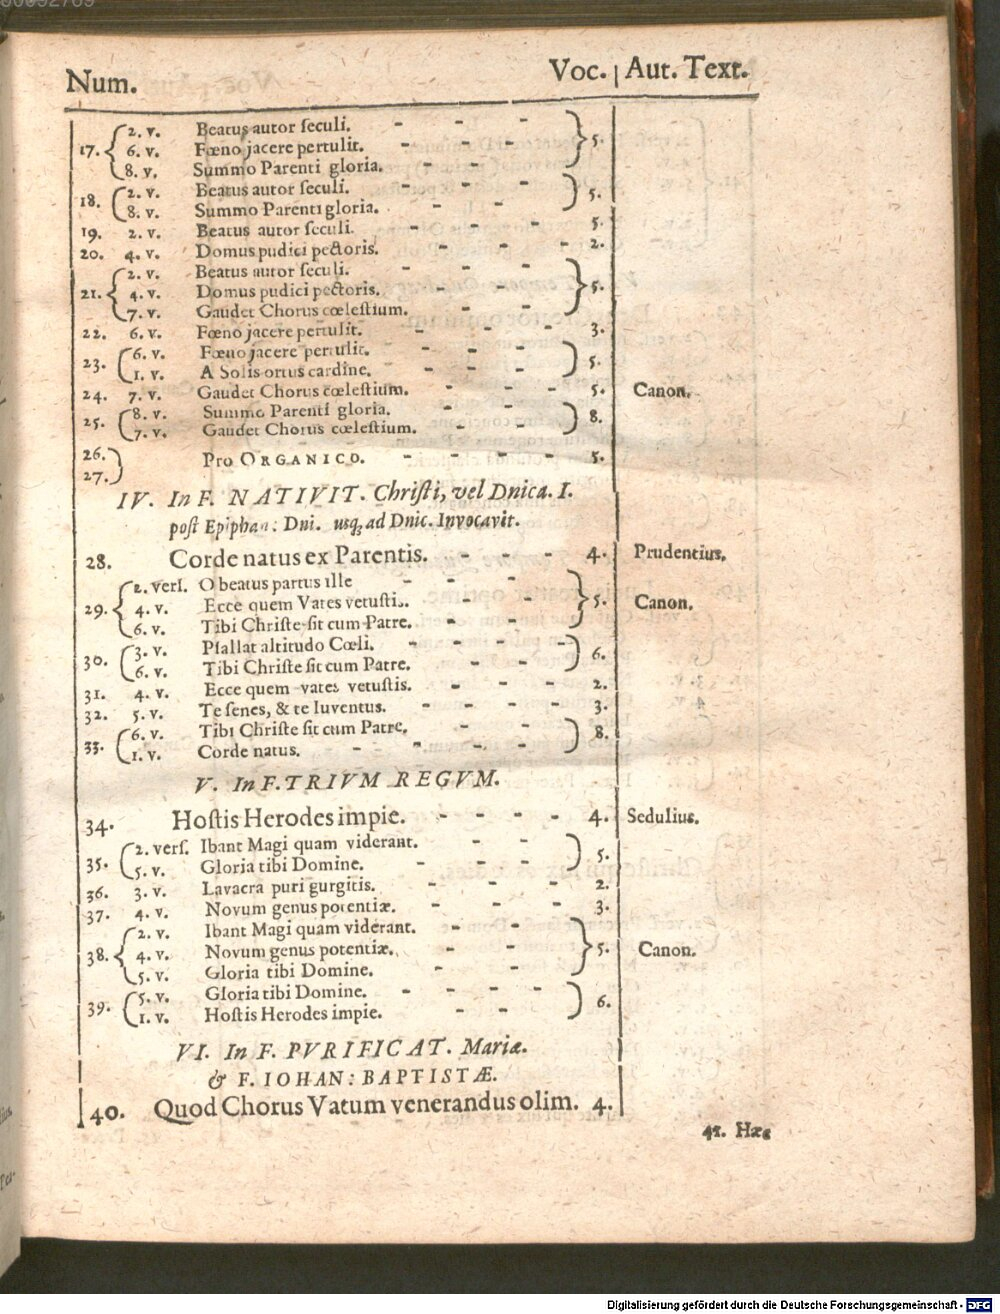 Num. Voc. | Aut. Text.
17. 2. v. Beatus autor ſeculi. - - -
6. v. Fœno jacere pertulit. - - - 5.
8. v. Summo Parenti gloria. - - -
18. 2. v. Beatus autor ſeculi. - - -
8. v. Summo Parenti gloria. - - - 5.
19. 2. v. Beatus autor ſeculi. - - - 5.
20. 4. v. Domus pudici pectoris. - - - 2.
21. 2. v. Beatus autor ſeculi. - - -
4. v. Domus pudici pectoris. - - - 5.
7. v. Gaudet Chorus cœleſtium. - - -
22. 6. v. Fœno jacere pertulit. - - - 3.
23. 6. v. Fœno jacere pertulit. - - - -
1. v. A Solis ortus cardine. - - - - 5.
24. 7. v. Gaudet Chorus cœleſtium. - - - 5. Canon.
25. 8. v. Summo Parenti gloria. - - -
7. v. Gaudet Chorus cœleſtium. - - - 8.
26.
27. Pro ORGANICO. - - - - - 5.
IV. In F. NATIVIT. Chriſti, vel Dnica. I.
poſt Epiphan: Dni. usq; ad Dnic. Invocavit.
28. Corde natus ex Parentis. - - - 4. Prudentius.
29. 2. verſ. O beatus partus ille - - - -
4. v. Ecce quem Vates vetuſtis. - - - 5. Canon.
6. v. Tibi Chriſte ſit cum Patre. - - -
30. 3. v. Pſallat altitudo Cœli. - - - -
6. v. Tibi Chriſte ſit cum Patre. - - - 6.
31. 4. v. Ecce quem vates vetuſtis. - - - 2.
32. 5. v. Te ſenes, & te Iuventus. - - - - 3.
33. 6. v. Tibi Chriſte ſit cum Patre. - - -
1. v. Corde natus. - - - - - 8.
V. In F. TRIVM REGVM.
34. Hoſtis Herodes impie. - - - - 4. Sedulius.
35. 2. verſ. Ibant Magi quam viderant. - - -
5. v. Gloria tibi Domine. - - - 5.
36. 3. v. Lavacra puri gurgitis. - - - 2.
37. 4. v. Novum genus potentiæ. - - - 3.
38. 2. v. Ibant Magi quam viderant. - - -
4. v. Novum genus potentiæ. - - - 5. Canon.
5. v. Gloria tibi Domine. - -
39. 5. v. Gloria tibi Domine. - - - -
1. v. Hoſtis Herodes impie. - - 6.
VI. In F. PVRIFICAT. Mariæ.
& F. IOHAN: BAPTISTÆ.
40. Quod Chorus Vatum venerandus olim. 4.
41. Hæc
Digitalisierung gefördert durch die Deutsche Forschungsgemeinschaft - DFG